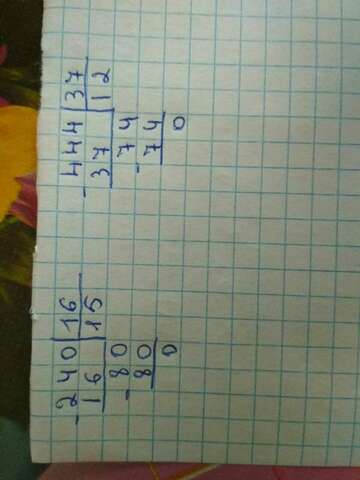 -240|16
16|15
-80
80
0
-444|37
37|12
-74
74
0